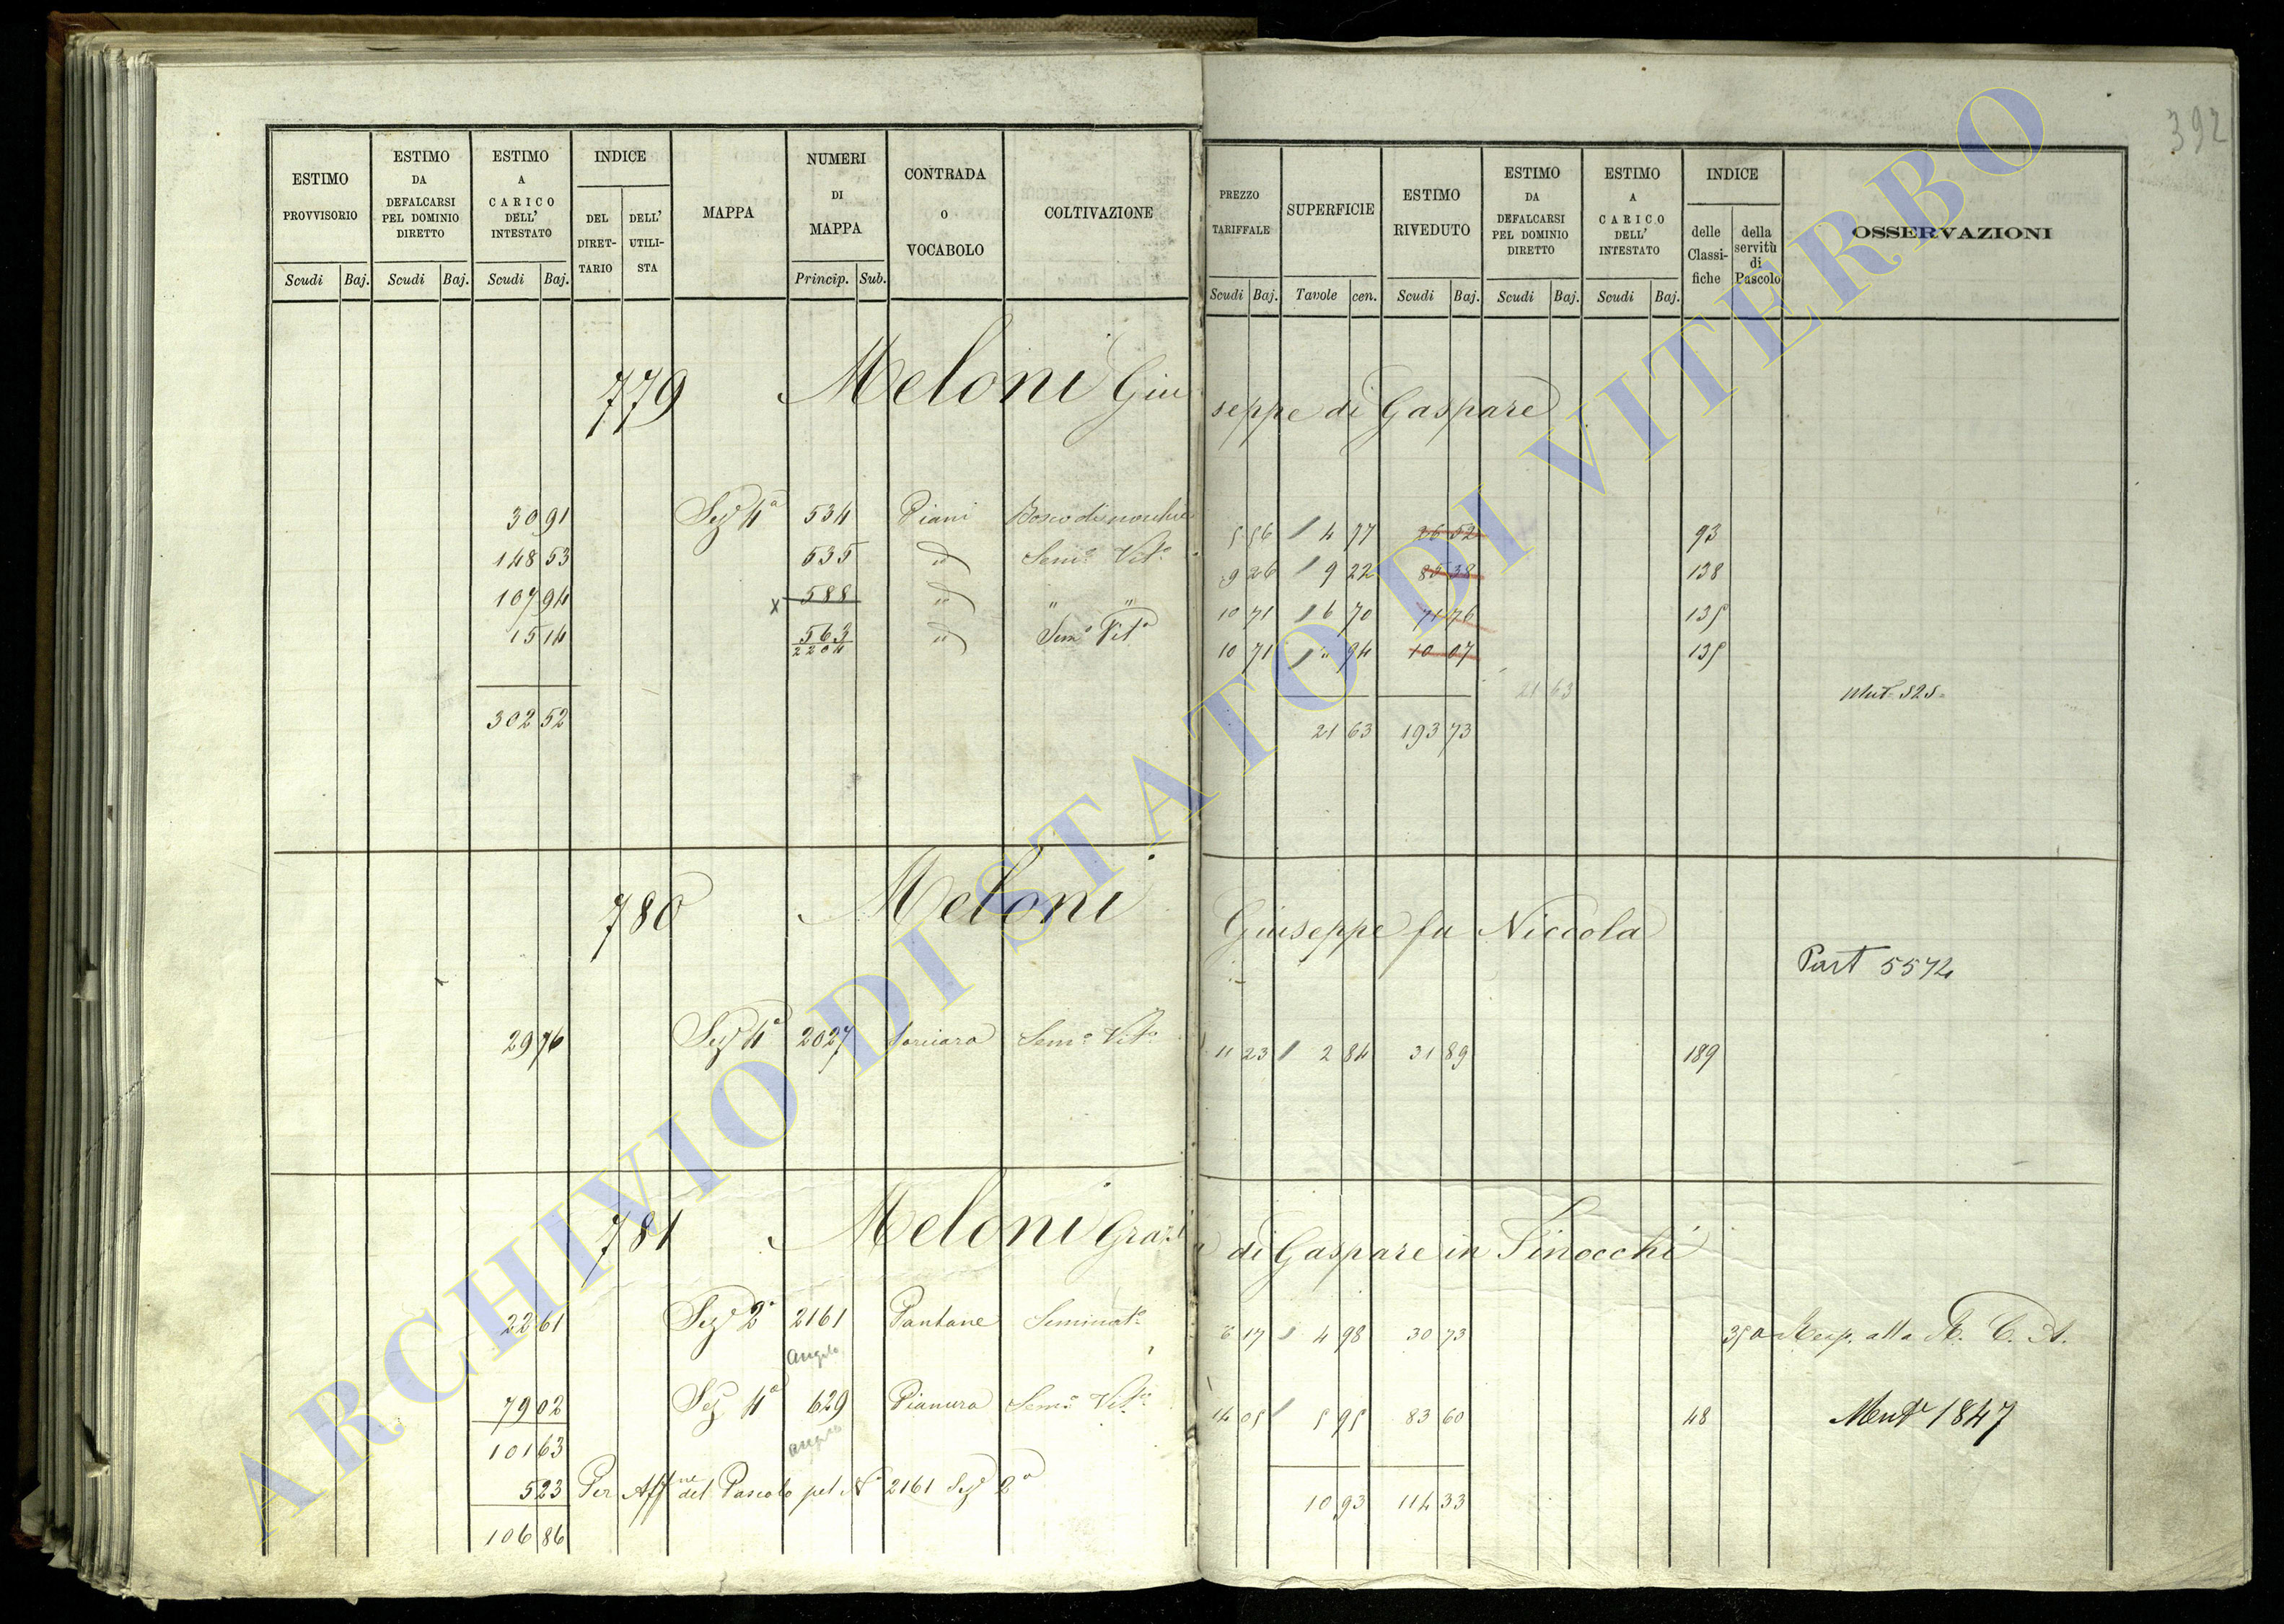 392
ESTIMO PROVVISORIO Scudi Baj.
ESTIMO DA DEFALCARSI PEL DOMINIO DIRETTO Scudi Baj.
ESTIMO A CARICO DELL' INTESTATO Scudi Baj.
INDICE DEL DIRET- TARIO DELL' UTILI- STA
MAPPA
NUMERI DI MAPPA Princip. Sub.
CONTRADA O VOCABOLO
COLTIVAZIONE
PREZZO TARIFFALE Scudi Baj.
SUPERFICIE Tavole cen.
ESTIMO RIVEDUTO Scudi Baj.
ESTIMO DA DEFALCARSI PEL DOMINIO DIRETTO Scudi Baj.
ESTIMO A CARICO DELL' INTESTATO Scudi Baj.
INDICE delle Classi- fiche della servitù di Pascolo
OSSERVAZIONI
779 Meloni Giu seppe di Gaspare
30 91 Sez 4a 534 Piani 5 56 4 77 26 52 93
148 53 535 " Semo Vito 9 26 9 22 85 38 138
107 94 x 588 " " " 10 71 6 70 71 76 135
15 14 563 2204 " Semo Vito 10 71 " 94 10 07 135
21 63
302 52 21 63 193 73
780 Meloni Giuseppe fu Niccola
Part 5574
29 76 Sez 4a 2027 Semo Vito 11 23 2 84 31 89 189
781 Meloni Grazia di Gaspare in Finocchi
22 61 Sez 2a 2161 Pantane Seminato 6 17 4 98 30 73 350 Resp. alla R. C. A.
Angelo
79 02 Sez 4a 629 Pianura Semo Vito 14 05 5 95 83 60 48
1847
101 63
Angelo
5 23 Per Affne del Pascolo pel No 2161 Sez 2a
10 93 114 33
106 86
ARCHIVIO DI STATO DI VITERBO